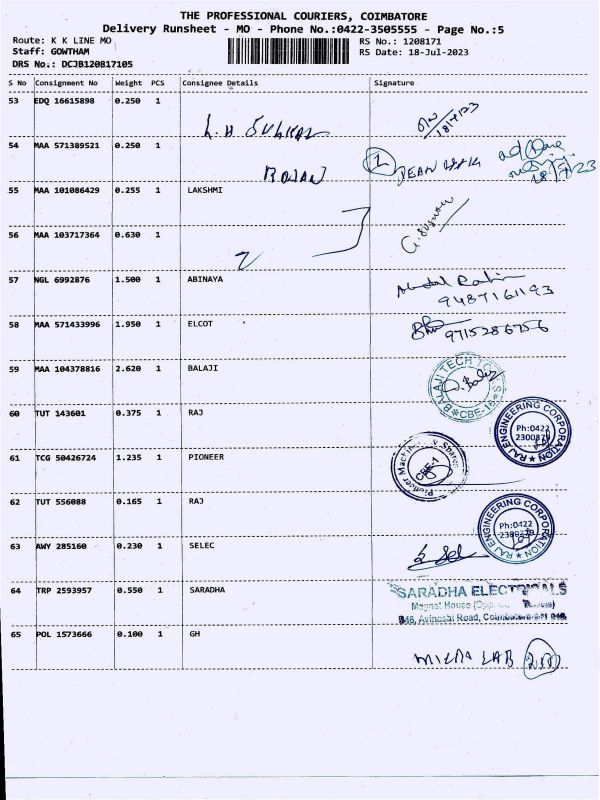 THE PROFESSIONAL COURIERS, COIMBATORE
Delivery Runsheet - MO - Phone No.:0422-3505555 - Page No.:5
Route: K K LINE MO RS No.: 1208171
Staff: GOWTHAM RS Date: 18-Jul-2023
DRS No.: DCJB120817105
S No Consignment No Weight PCS Consignee Details Signature
53 EDQ 16615898 0.250 1
18/7/23
54 MAA 571389521 0.250 1
18/7/23
55 MAA 101086429 0.255 1 LAKSHMI
56 MAA 103717364 0.630 1
57 NGL 6992876 1.500 1 ABINAYA
9487161193
58 MAA 571433996 1.950 1 ELCOT
9715286756
59 MAA 104378816 2.620 1 BALAJI
BALAJI TECH
CBE-
60 TUT 143601 0.375 1 RAJ
RAJ ENGINEERING CORPORATION
Ph:0422
61 TCG 50426724 1.235 1 PIONEER
Pioneer
CBE-1
62 TUT 556088 0.165 1 RAJ
RAJ ENGINEERING CORPORATION
Ph:0422
63 AWY 285160 0.230 1 SELEC
64 TRP 2593957 0.550 1 SARADHA
SARADHA ELECTRICALS
House
Avinashi Road,
65 POL 1573666 0.100 1 GH
MICRO LAB